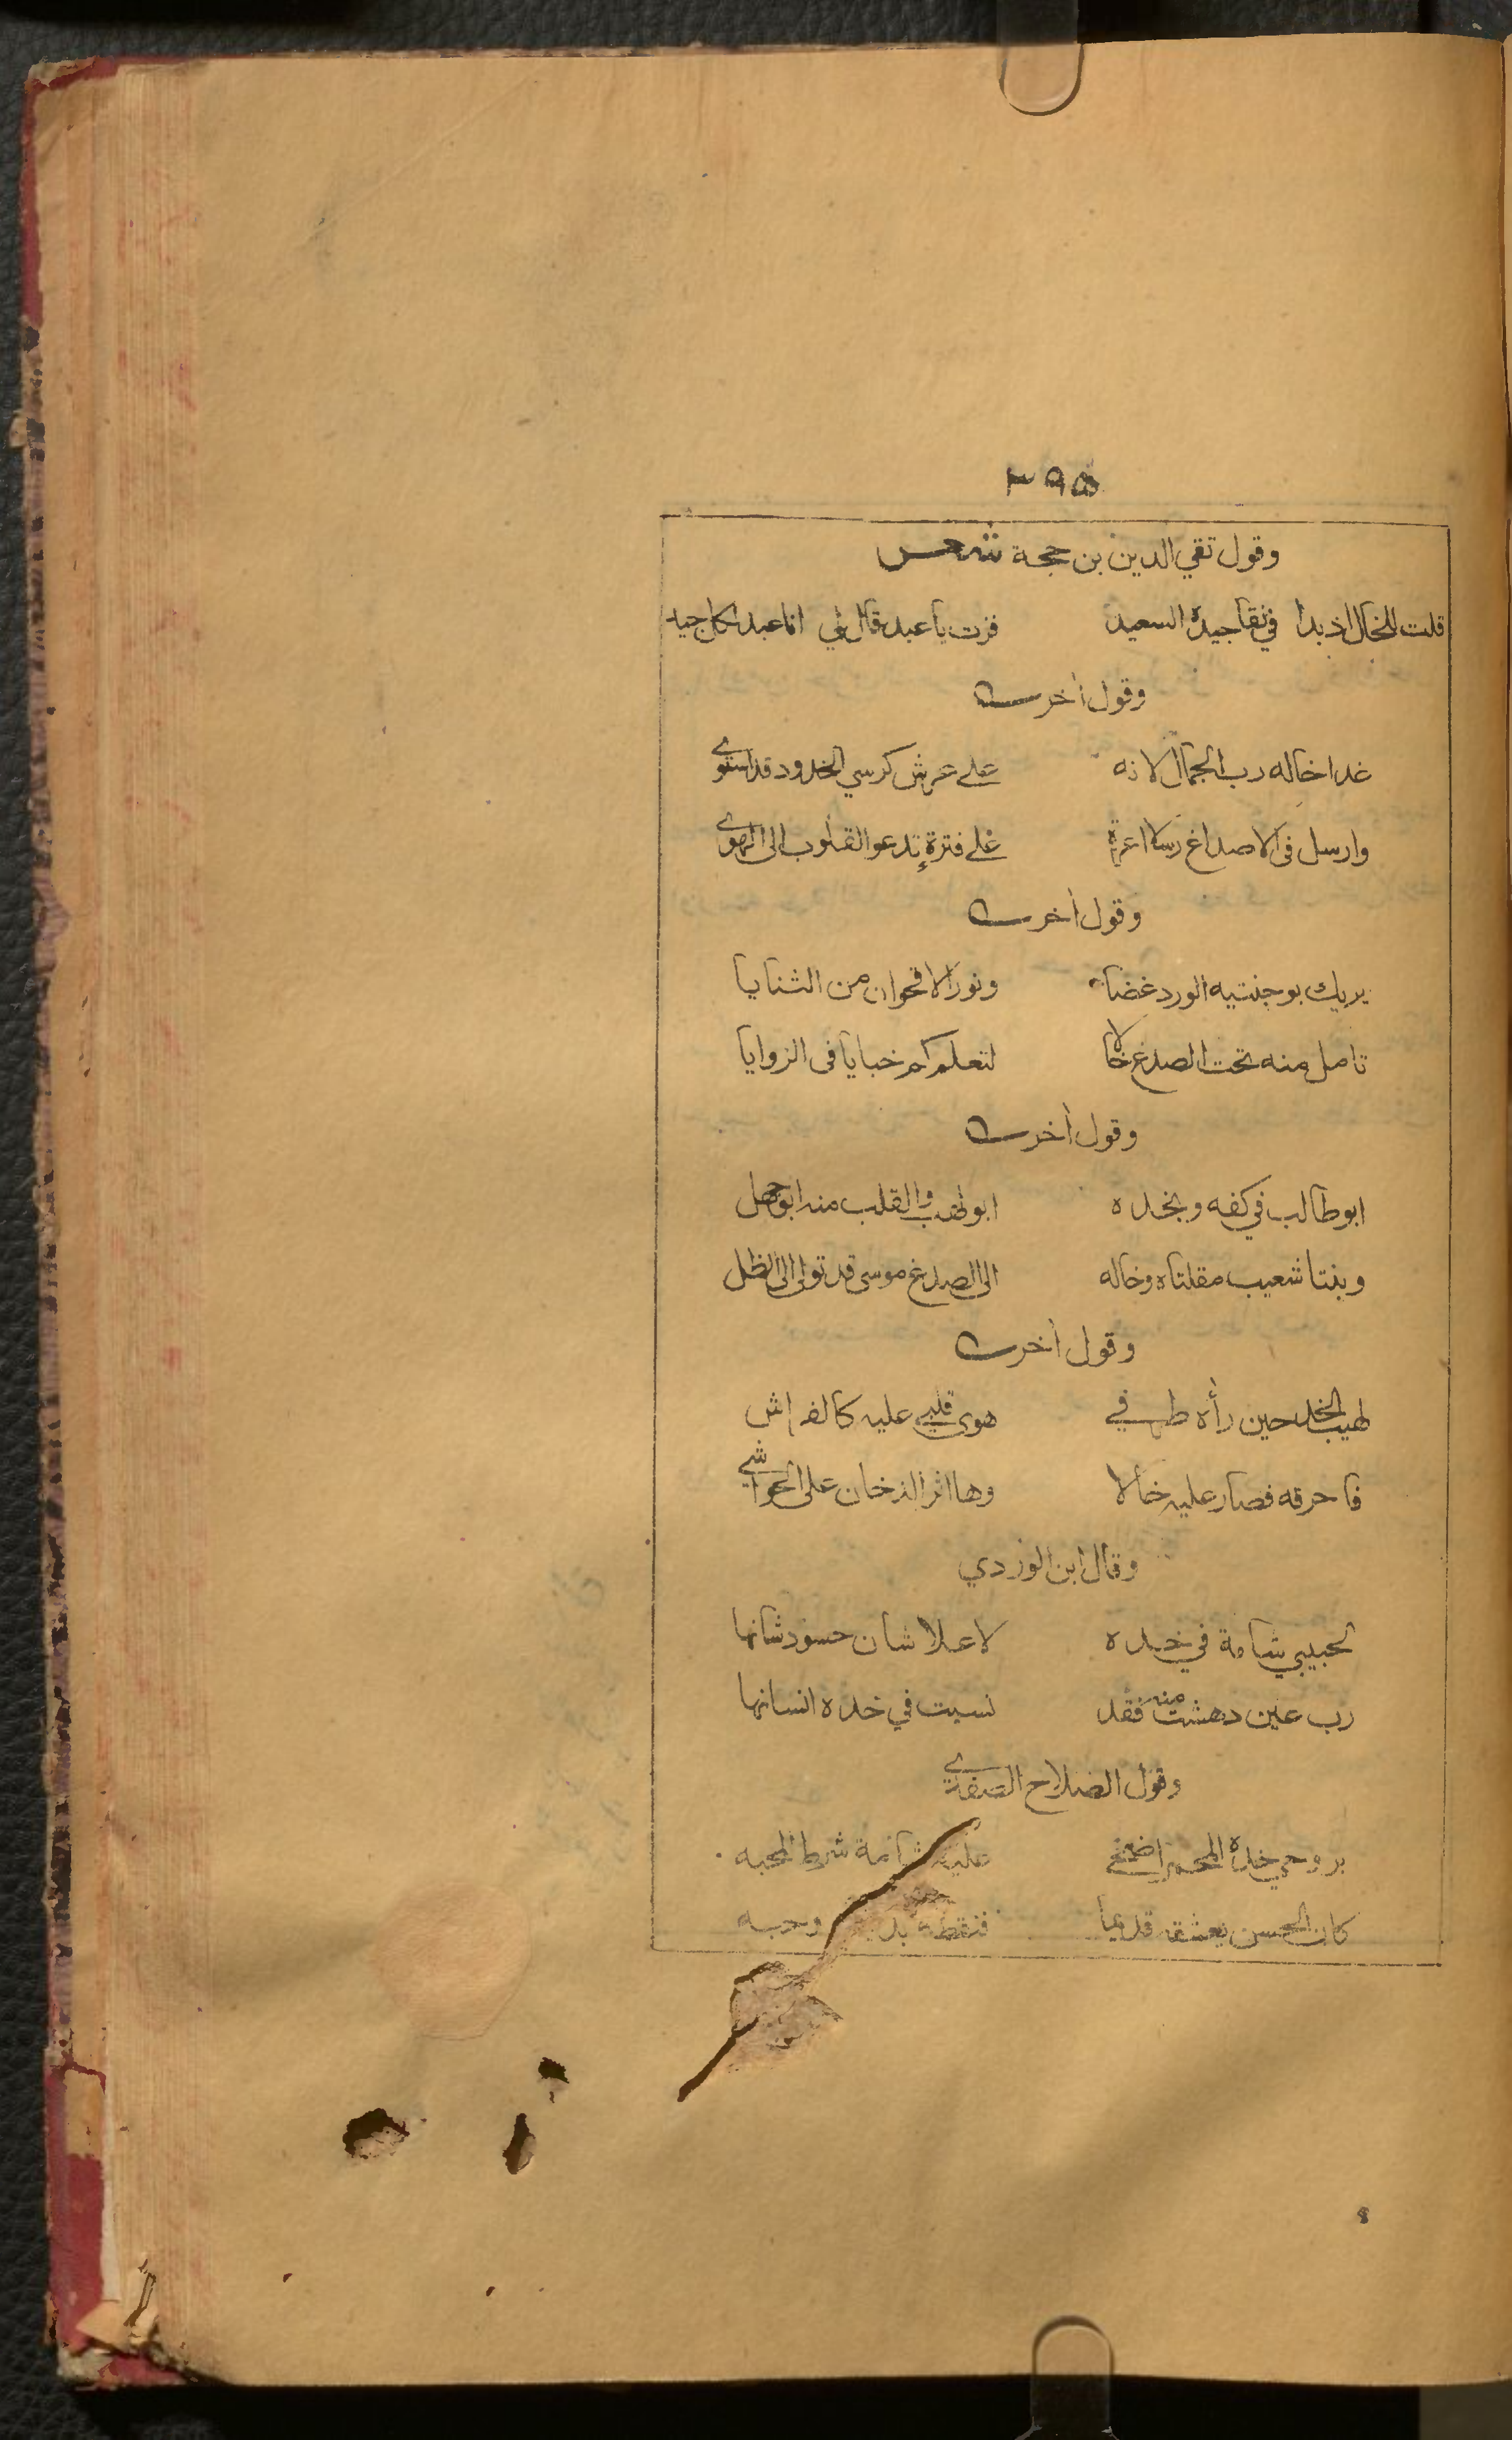 ٣٩٥
وقول تقي الدين بن حجة شعر
قلت للخال اذ بدا في نقا جيده السعيد فزت يا عبد قال لي انا عبد لكل جيد
وقول أخر
غدا خاله رب الجمال لانه على عرش كرسي الخدود قد استوى
وارسل فى الاصداغ رسلا اعزة على فترةٍ تدعو القلوب الى الهوى
وقول أخر
يريك بوجنتيه الورد غضا ونور الاقحوان من الثنايا
تامل منه تحت الصدغ خالا لتعلم كم خبايا فى الزوايا
وقول أخر
ابو طالب في كفه وبخده ابو لهب والقلب منه ابو جهل
وبنتا شعيب مقلتاه وخاله الى الصدغ موسى قد تولى الى الظل
وقول أخر
لهيب الخد حين رأه طرفي هوى قلبي عليه كالفراش
فاحرقه فصار عليه خالا وها اثر الدخان على الحواشي
وقال ابن الوردي
لحبيبي شامة في خده لا علا شان حسود شانها
رب عين دهشت منه فقد نسيت في خده انسانها
وقول الصلاح الصفدي
بروحي خده المحمر اضحى عليه شامة شرط المحبه
كان الحسن يعشقه قديما فنقطه وحبه